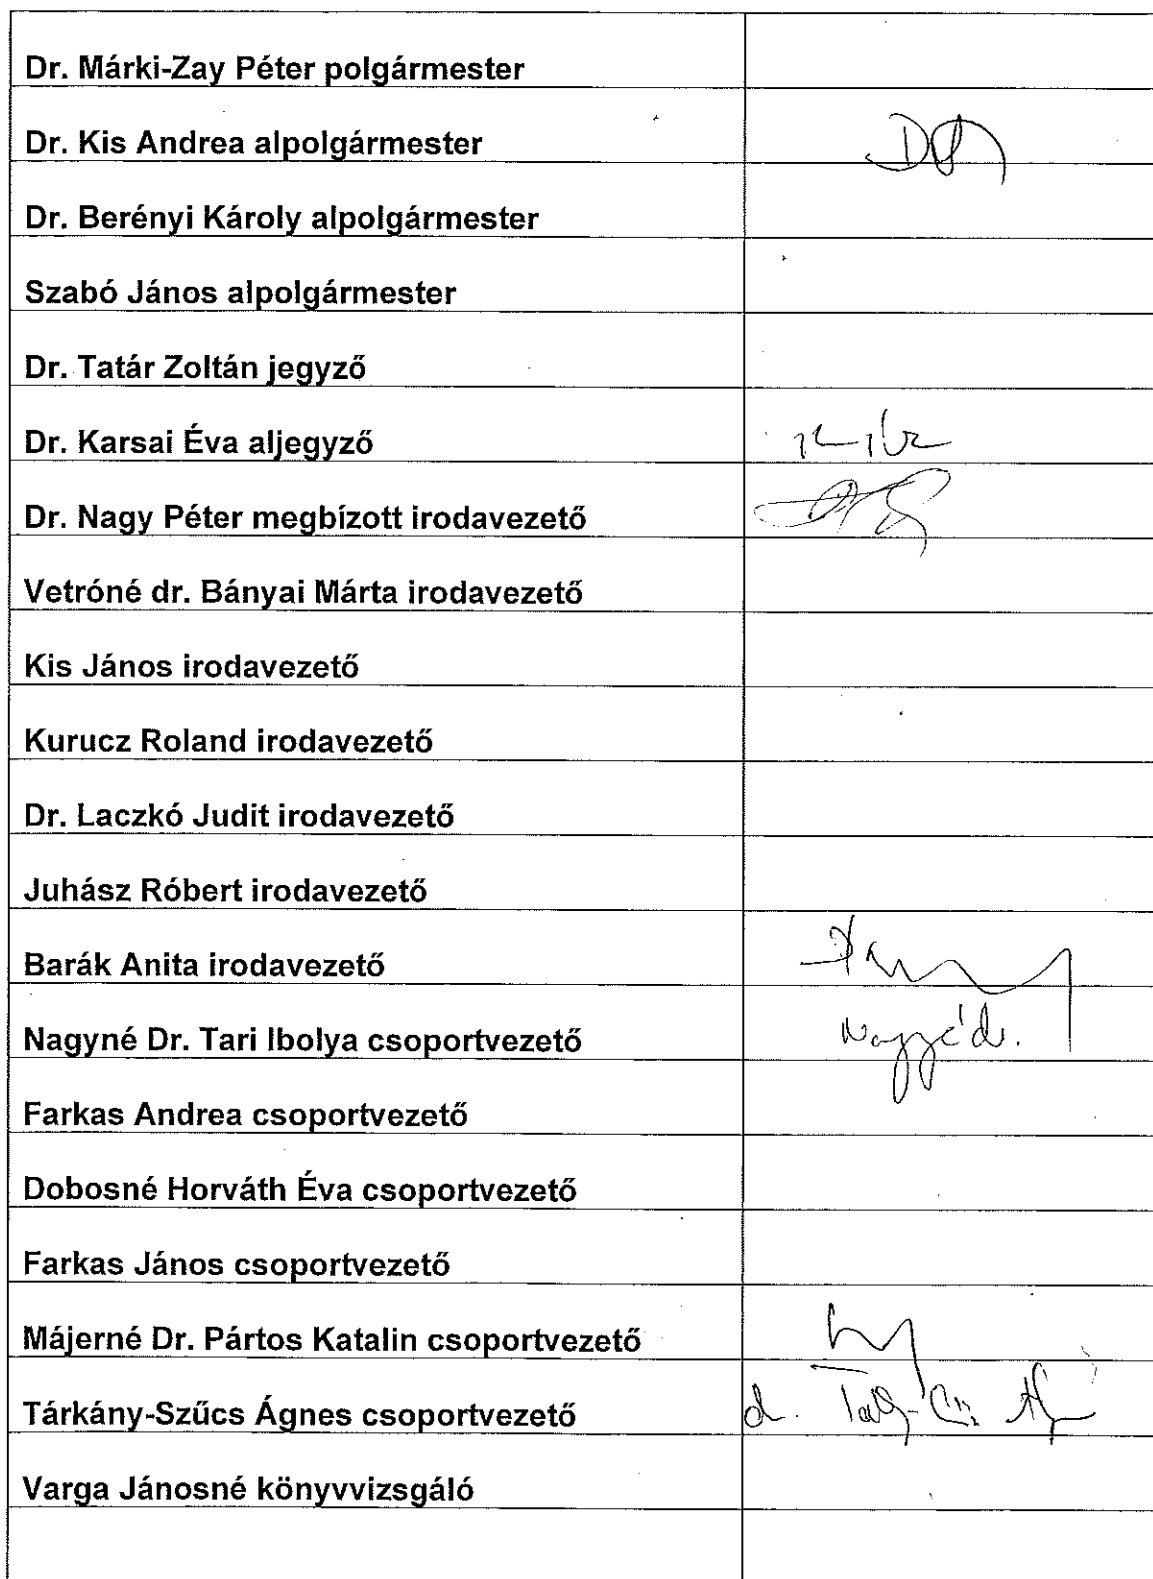 Dr. Márki-Zay Péter polgármester
Dr. Kis Andrea alpolgármester
Dr. Berényi Károly alpolgármester
Szabó János alpolgármester
Dr. Tatár Zoltán jegyző
Dr. Karsai Éva aljegyző
Dr. Nagy Péter megbízott irodavezető
Vetróné dr. Bányai Márta irodavezető
Kis János irodavezető
Kurucz Roland irodavezető
Dr. Laczkó Judit irodavezető
Juhász Róbert irodavezető
Barák Anita irodavezető
Nagyné Dr. Tari Ibolya csoportvezető
Farkas Andrea csoportvezető
Dobosné Horváth Éva csoportvezető
Farkas János csoportvezető
Májerné Dr. Pártos Katalin csoportvezető
Tárkány-Szűcs Ágnes csoportvezető
Varga Jánosné könyvvizsgáló